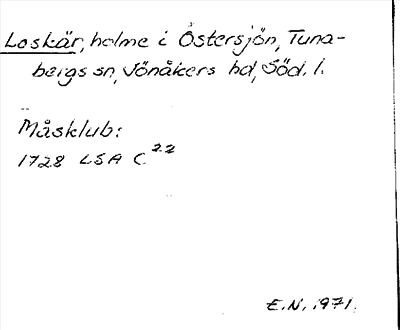 Loskär, holme i Östersjön, Tuna-
bergs sn, Jönåkers hd, Söd. l.
Måsklub:
1728 LSA C 22
E.N. 1971.